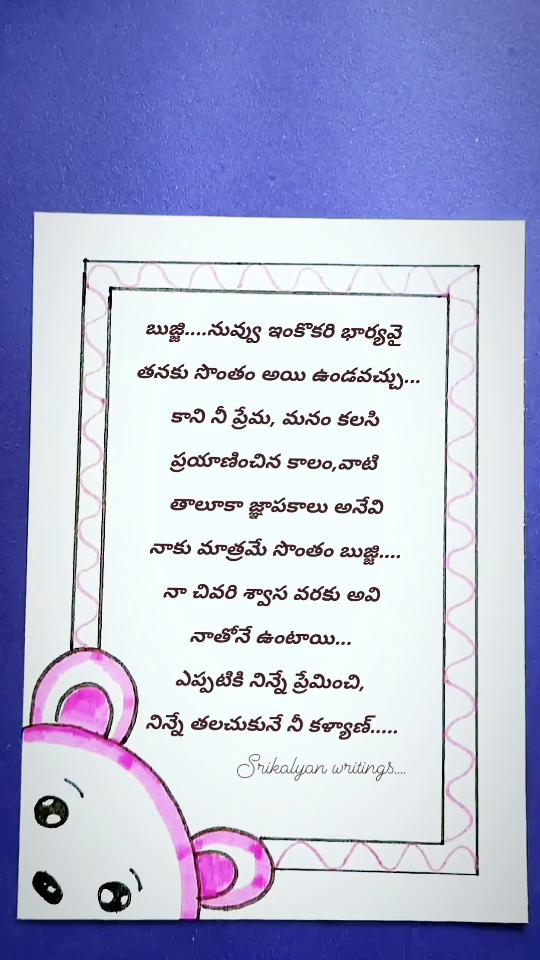 బుజ్జి....నువ్వు ఇంకొకరి భార్యవై
తనకు సొంతం అయి ఉండవచ్చు...
కాని నీ ప్రేమ, మనం కలసి
ప్రయాణించిన కాలం,వాటి
తాలూకా జ్ఞాపకాలు అనేవి
నాకు మాత్రమే సొంతం బుజ్జి....
నా చివరి శ్వాస వరకు అవి
నాతోనే ఉంటాయి...
ఎప్పటికి నిన్నే ప్రేమించి,
నిన్నే తలచుకునే నీ కళ్యాణ్.....
Srikalyan writings....